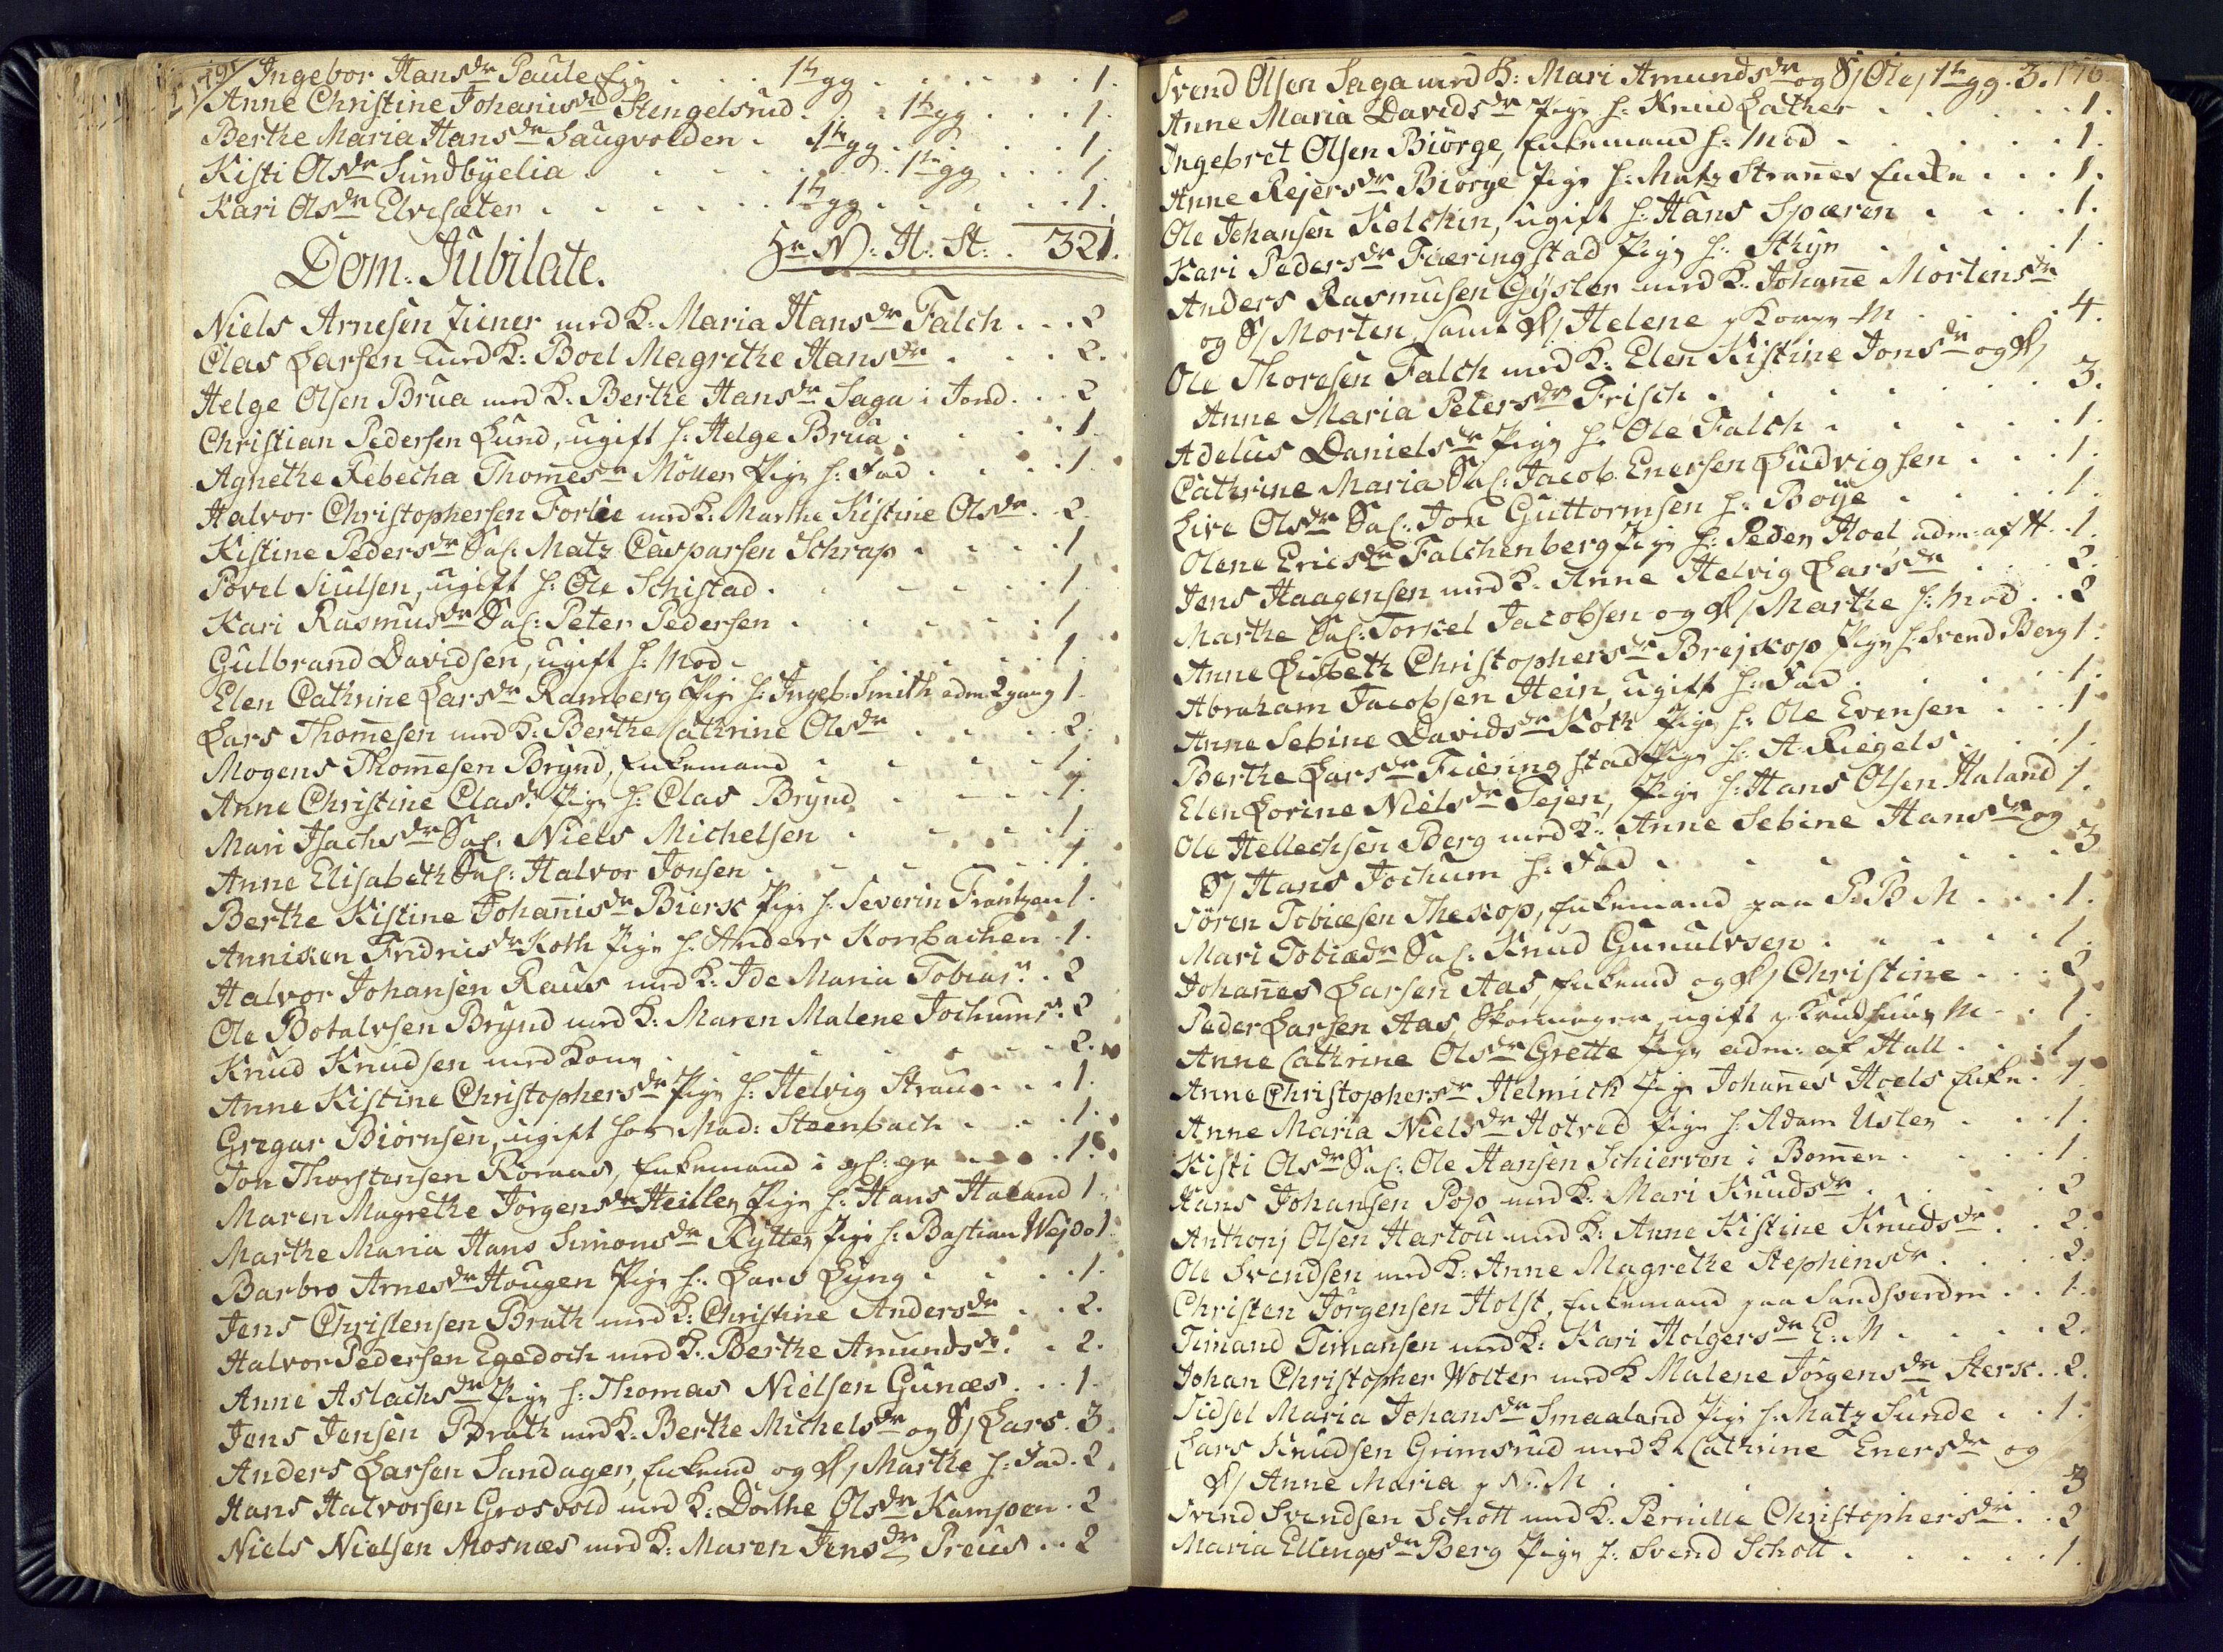 Ingebor Hansdr Paule Pige . . . 1te gg . . . . . 1.
Anne Christine Johanisdr Stengelsrud . . 1te gg . . . 1.
Berthe Maria Hansdr Saugvolden . 1te gg . . . . 1.
Kisti Olsdr Sundbÿelia . . . . . . 1te gg . . . 1.
Kari Olsdr Elvesæter . . . . . . 1te gg . . . . . 1.
Dom: Jubilate.
Hr N: H: St: . 321.
Niels Arnesen Ziener med K: Maria Hansdr Falch . . . 2
Clas Larsen med K: Boel Magrethe Hansdr . . . 2.
Helge Olsen Brua med K: Berthe Hansdr Saga i Jond . . . 2
Christian Pedersen Lund, ugift h: Helge Brua . . . . 1.
Agnethe Rebecha Thomesdr Möller Pige h: Fad . . . . 1.
Halvor Christophersen Forlie med K: Marthe Kistine Olsdr . 2.
Kistine Pedersdr Sal: Matz Casparsen Schrap . . . . 1
Povel Siulsen, ugift h: Ole Schistad . . . . . . 1.
Kari Rasmusdr Sal: Peter Pedersen . . . . . 1
Gulbrand Davidsen, ugift h: Mod . . . . . . 1.
Elen Cathrine Larsdr Ramberg Pige h: Ingeb: Smith adm 2 gang 1.
Lars Thomesen med K: Berthe Cathrine Olsdr . . . . 2.
Mogens Thomesen Brÿnd, Enkemand . . . . . 1.
Anne Christine Clasdr Pige h: Clas Brÿnd . . . . 1.
Mari Isachsdr Sal: Niels Michelsen . . . . . 1.
Anne Elisabeth Sal: Halvor Jonsen . . . . . . 1.
Berthe Kistine Johanisdr Biersk Pige h: Severin Frantzen 1.
Anniken Fridricsdr Koth Pige h: Anders Korsbachen . 1.
Halvor Johansen Raus med K: Ide Maria Tobiasdr . 2
Ole Botalvsen Brÿnd med K: Maren Malene Jochumsdr. 2
Knud Knudsen med Kone . . . . . . . 2.
Anne Kistine Christophersdr Pige h: Helvig Straus . . . 1.
Gregar Biörnsen, ugift hos Mad: Steenbach . . . . 1.
Jon Thorstensen Röraas, Enkemand i gl: gr . . . . 1.
Maren Magrethe Jörgensdr Heiller Pige h: Hans Haland 1.
Marthe Maria Hans Simonsdr Rÿtter Pige h: Bastian Wejdo 1.
Barbro Arnesdr Haugen Pige h: Lars Lÿng . . . . 1.
Jens Christensen Brath med K: Christine Andersdr . . 2.
Halvor Pedersen Egedoch med K: Berthe Amundsdr. . 2.
Anne Aslachsdr Pige h: Thomas Nielsen Gunæs . . . 1.
Jens Jensen Brath med K: Berthe Michelsdr og S/ Lars . 3.
Anders Larsen Sandager, Enkemd og D/ Marthe h: Fad . 2.
Hans Halvorsen Grosvold med K: Dorthe Olsdr Kampen . 2
Niels Nielsen Mosnæs med K: Maren Jensdr Preus . . 2
Svend Olsen Saga med K: Mari Amundsdr og S/ Ole / 1te gg. 3. 176.
Anne Maria Davidsdr Pige h: Knud Lather . . . . . 1.
Ingebret Olsen Biörge, Enkemand h: Mod . . . . . 1.
Anne Rejersdr Biörge Pige h: Matz Stranes Enke . . . 1.
Ole Johansen Kelchin, ugift h: Hans Sparen . . . . 1.
Kari Pedersdr Fiæringstad Pige h: Thÿn . . . . . 1.
Anders Rasmusen Gÿsler med K: Johane Mortensdr
og S/ Morten, samt D/ Helene p Konge M . . . . 4.
Ole Thoresen Falch med K: Elen Kistine Jonsdr og D/
Anne Maria Petersdr Frisch . . . . . . . 3.
Adelus Danielsdr Pige h: Ole Falch . . . . . 1.
Cathrine Maria Sal: Jacob Enersen Ludvigsen . . . 1.
Live Olsdr Sal: Jon Guttormsen h: Boÿe . . . . 1.
Olene Ericsdr Falchenberg Pige h: Peder Hoel adm: af H . 1.
Jens Haagensen med K: Anne Helvig Larsdr . . . 2.
Marthe Sal: Torkel Jacobsen og D/ Marthe h: Mod . . 2
Anne Lisbeth Christophersdr Brejskop Pige h: Svend Berg 1.
Abraham Jacobsen Hein, ugift h: Fad . . . . . 1.
Anne Sebine Davidsdr Koth Pige h: Ole Evensen . . . 1.
Berthe Larsdr Fiæringstad Pige h: A: Riegels . . . 1.
Elen Lorine Nielsdr Tejen, Pige h: Hans Olsen Haland 1.
Ole Hellechsen Berg med K: Anne Sebine Hansdr og
S/ Hans Jochum h: Fad . . . . . . . . 3
Sören Tobiæsen Theskop, Enkemand paa P: B M . . . 1.
Mari Tobiædr Sal: Knud Gunulvsen . . . . . 1.
Johanes Larsen Aas, Enkemd og D/ Christine . . . 2.
Peder Larsen Aas, Skomager, ugift p Krudhuus M . . 1.
Anne Cathrine Olsdr Grette Pige adm: af Hall . . . 1
Anne Christophersdr Helmich Pige Johanes Hoels Enke . 1
Anne Maria Nielsdr Hotved Pige h: Adam Usler . . . 1.
Kisti Olsdr Sal: Ole Hansen Schierven i Bomen . . . . 1.
Hans Johansen Pop med K: Mari Knudsdr . . . . 2
Anthonj Olsen Hartou med K: Anne Kistine Knudsdr . . 2.
Ole Svendsen med K: Anne Magrethe Stephensdr . . . 2.
Christen Jörgensen Holst, Enkemand paa Sandsverden . . 1.
Timand Timansen med K: Kari Holgersdr E: M . . . . 2.
Johan Christopher Wolter med K Malene Jörgensdr Sterk . . 2.
Sidsel Maria Johansdr Smaaland Pige h: Matz Sunde . . 1.
Lars Knudsen Grimsrud med K Cathrine Enersdr og
D/ Anne Maria p N: M . . . . . . . . 3
Svend Svendsen Schott med K: Pernille Christophersdr . . 2
Maria Ellingsdr Berg Pige h: Svend Schott . . . . . 1.